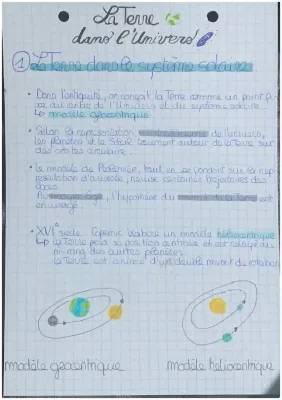 La Terre
dans l'Univers
1 La Terre dans le système solaire
• Dans l'antiquité, on conçoit la Terre comme un point
au centre de l'Univers et du système solaire.
↳ modèle géocentrique
• Selon la représentation de l'univers,
les planètes et la tournent autour de la Terre sur
des orbites circulaires.
• Le modèle de Ptolémée, tout en se fondant sur la
représentation d'Aristote, certaines trajectoires des
Au l'hypothèse du de la Terre est
envisagé.
• XVIe siècle Copernic élabore un modèle héliocentrique
↳ La Terre perd sa position centrale et est au
rang des autres planètes.
La Terre est animée d'un double mvmt de rotation
modèle géocentrique
modèle héliocentrique